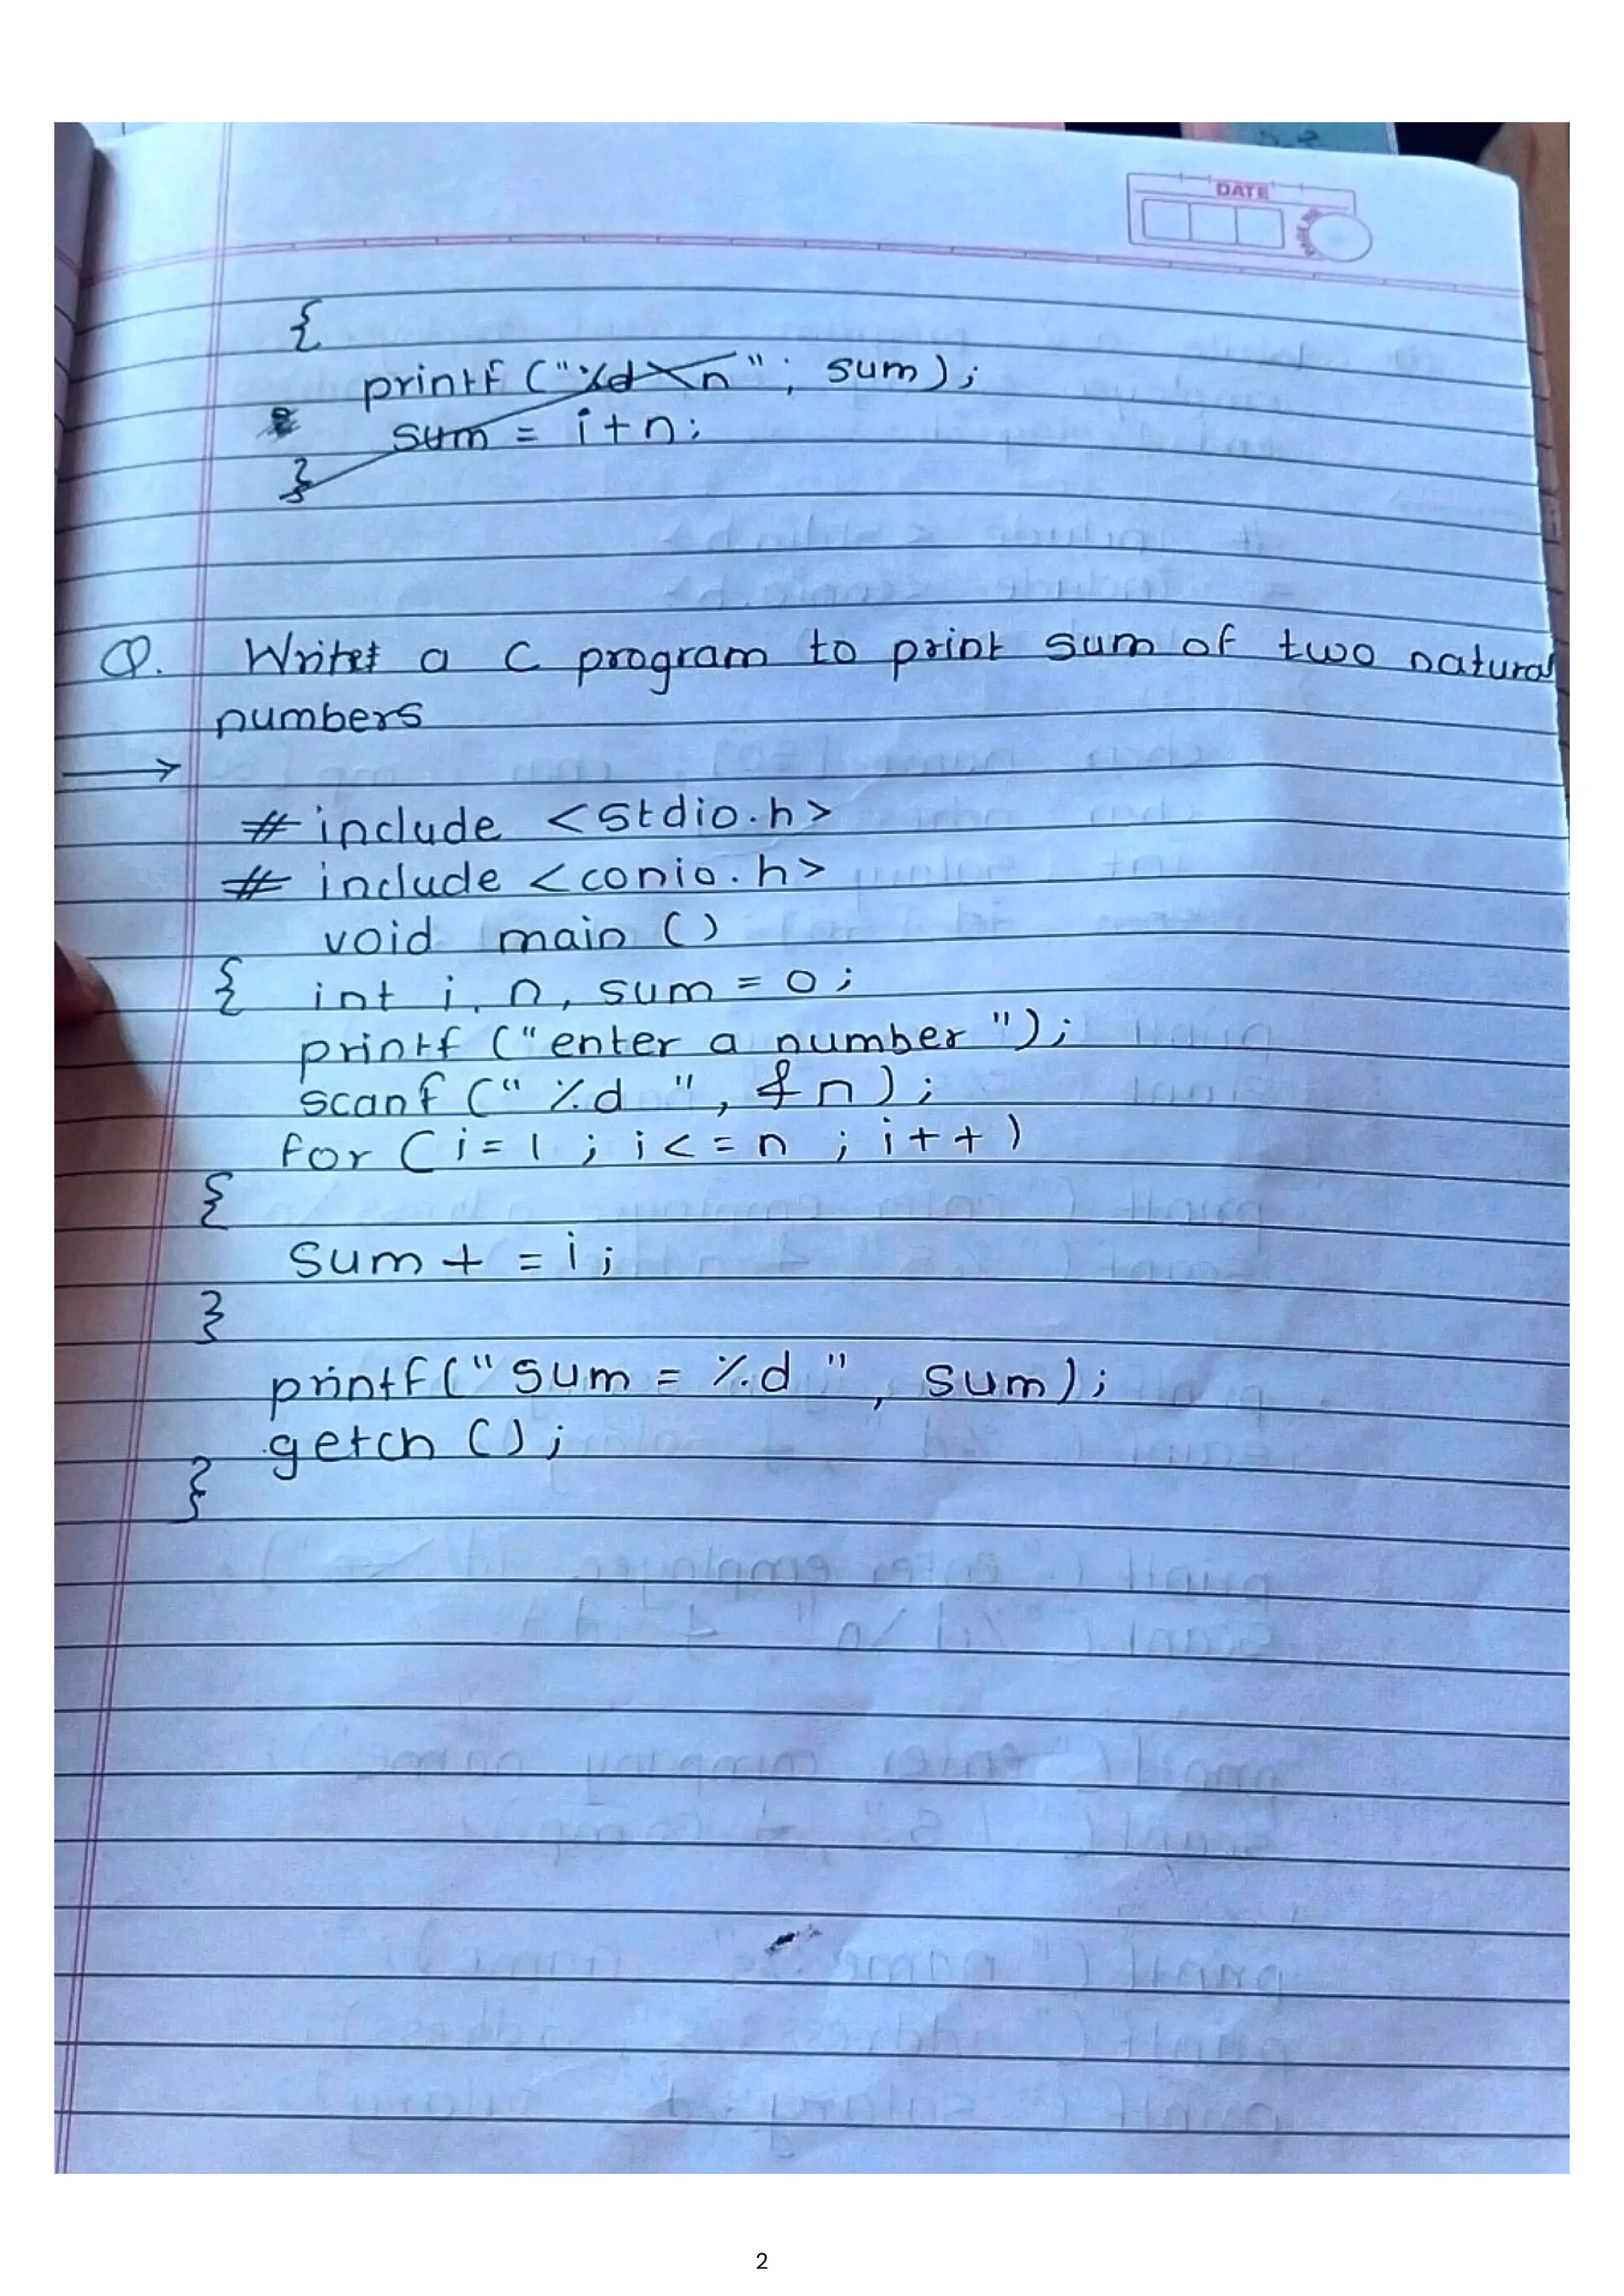 DATE
{
printf ("%d\n" ; sum);
sum = i+n;
}
Q. Write a C program to print sum of two natural
numbers
→
# include <stdio.h>
# include <conio.h>
void main ()
{ int i, n, sum = 0;
printf ("enter a number");
scanf ("%d ", &n);
for (i=1 ; i<=n ; i++)
{
sum + = i;
}
printf("sum = %d ", sum);
getch ();
}
2